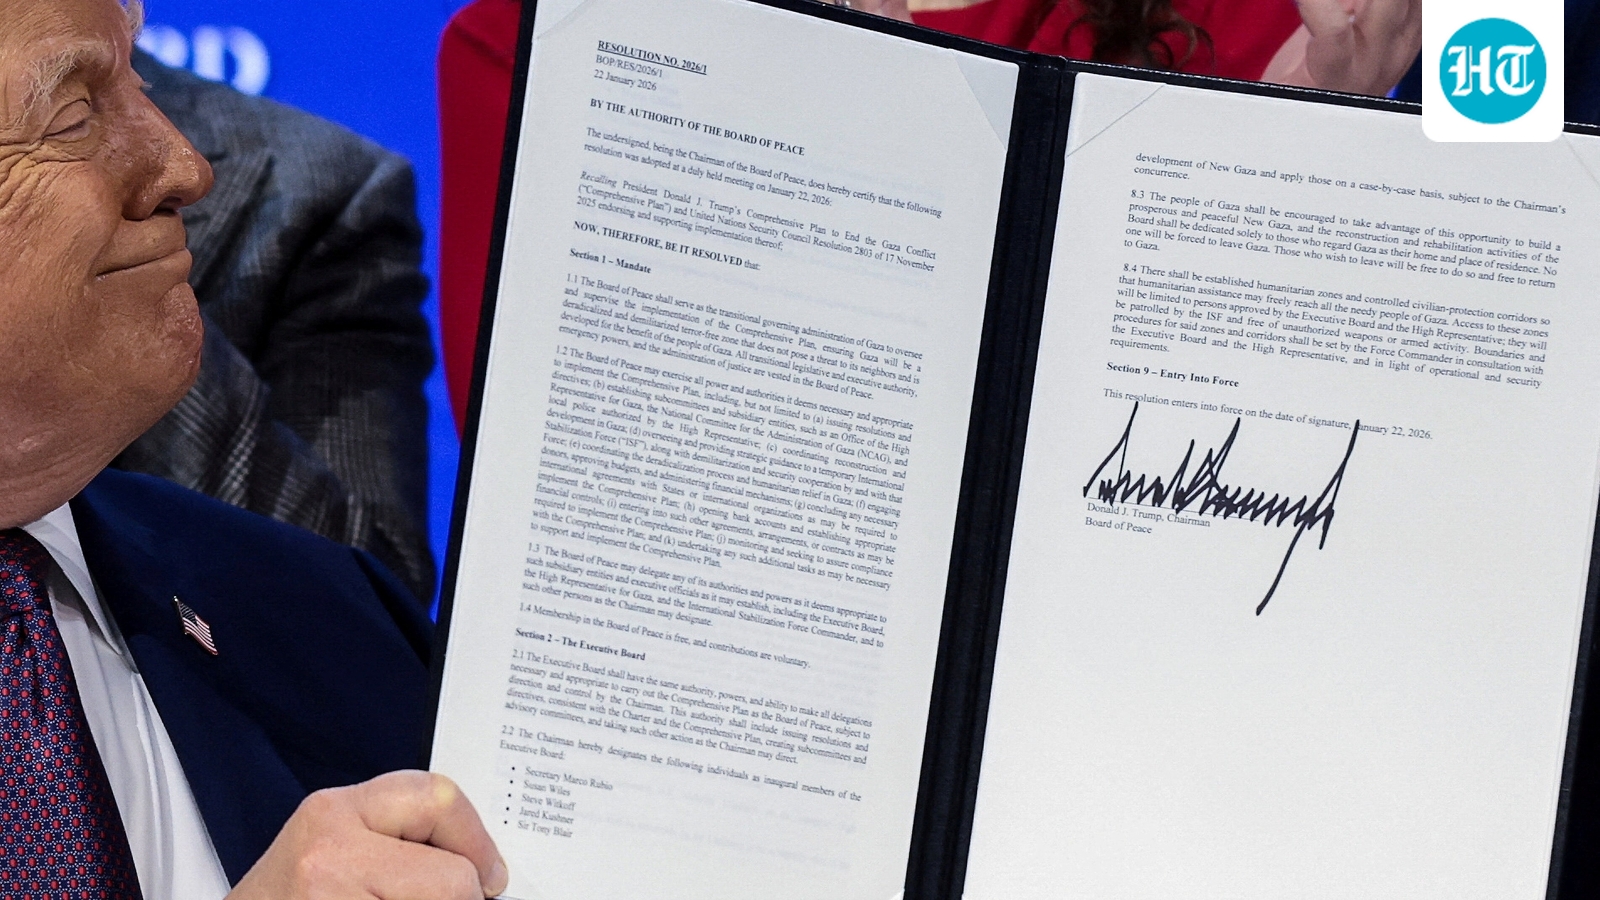 RD
HT
RESOLUTION NO. 2026/1
BOP/RES/2026/1
22 January 2026
BY THE AUTHORITY OF THE BOARD OF PEACE
The undersigned, being the Chairman of the Board of Peace, does hereby certify that the following
resolution was adopted at a duly held meeting on January 22, 2026:
Recalling President Donald J. Trump's Comprehensive Plan to End the Gaza Conflict
("Comprehensive Plan") and United Nations Security Council Resolution 2803 of 17 November
2025 endorsing and supporting implementation thereof;
NOW, THEREFORE, BE IT RESOLVED that:
Section 1 – Mandate
1.1 The Board of Peace shall serve as the transitional governing administration of Gaza to oversee
and supervise the implementation of the Comprehensive Plan, ensuring Gaza will be a
deradicalized and demilitarized terror-free zone that does not pose a threat to its neighbors and is
developed for the benefit of the people of Gaza. All transitional legislative and executive authority,
emergency powers, and the administration of justice are vested in the Board of Peace.
1.2 The Board of Peace may exercise all power and authorities it deems necessary and appropriate
to implement the Comprehensive Plan, including, but not limited to (a) issuing resolutions and
directives; (b) establishing subcommittees and subsidiary entities, such as an Office of the High
Representative for Gaza, the National Committee for the Administration of Gaza (NCAG), and
local police authorized by the High Representative; (c) coordinating reconstruction and
development in Gaza; (d) overseeing and providing strategic guidance to a temporary International
Stabilization Force ("ISF"), along with demilitarization and security cooperation by and with that
Force; (e) coordinating the deradicalization process and humanitarian relief in Gaza; (f) engaging
donors, approving budgets, and administering financial mechanisms; (g) concluding any necessary
international agreements with States or international organizations as may be required to
implement the Comprehensive Plan; (h) opening bank accounts and establishing appropriate
financial controls; (i) entering into such other agreements, arrangements, or contracts as may be
required to implement the Comprehensive Plan; (j) monitoring and seeking to assure compliance
with the Comprehensive Plan; and (k) undertaking any such additional tasks as may be necessary
to support and implement the Comprehensive Plan.
1.3 The Board of Peace may delegate any of its authorities and powers as it deems appropriate to
such subsidiary entities and executive officials as it may establish, including the Executive Board,
the High Representative for Gaza, and the International Stabilization Force Commander, and to
such other persons as the Chairman may designate.
1.4 Membership in the Board of Peace is free, and contributions are voluntary.
Section 2 – The Executive Board
2.1 The Executive Board shall have the same authority, powers, and ability to make all delegations
necessary and appropriate to carry out the Comprehensive Plan as the Board of Peace, subject to
direction and control by the Chairman. This authority shall include issuing resolutions and
directives, consistent with the Charter and the Comprehensive Plan, creating subcommittees and
advisory committees, and taking such other action as the Chairman may direct.
2.2 The Chairman hereby designates the following individuals as inaugural members of the
Executive Board:
• Secretary Marco Rubio
• Susan Wiles
• Steve Witkoff
• Jared Kushner
• Sir Tony Blair
development of New Gaza and apply those on a case-by-case basis, subject to the Chairman's
concurrence.
8.3 The people of Gaza shall be encouraged to take advantage of this opportunity to build a
prosperous and peaceful New Gaza, and the reconstruction and rehabilitation activities of the
Board shall be dedicated solely to those who regard Gaza as their home and place of residence. No
one will be forced to leave Gaza. Those who wish to leave will be free to do so and free to return
to Gaza.
8.4 There shall be established humanitarian zones and controlled civilian-protection corridors so
that humanitarian assistance may freely reach all the needy people of Gaza. Access to these zones
will be limited to persons approved by the Executive Board and the High Representative; they will
be patrolled by the ISF and free of unauthorized weapons or armed activity. Boundaries and
procedures for said zones and corridors shall be set by the Force Commander in consultation with
the Executive Board and the High Representative, and in light of operational and security
requirements.
Section 9 – Entry Into Force
This resolution enters into force on the date of signature, January 22, 2026.
Donald J. Trump, Chairman
Board of Peace